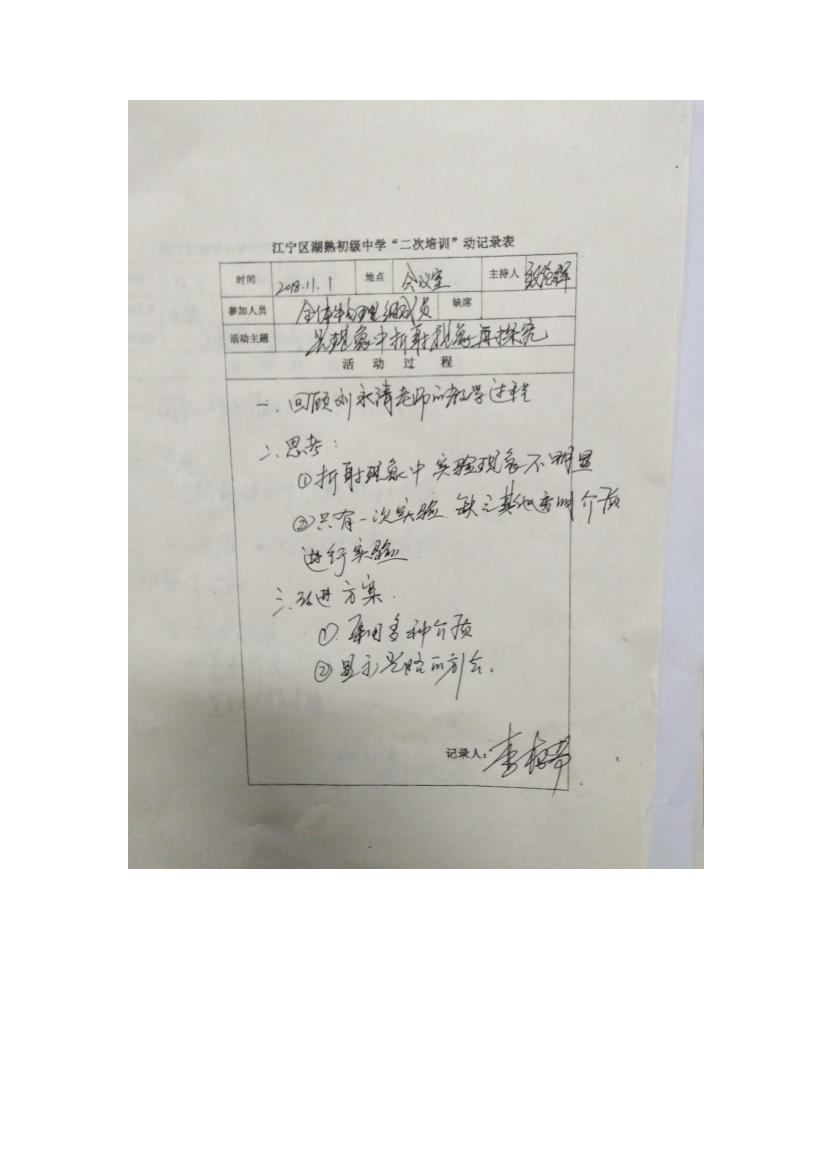 江宁区湖熟初级中学“二次培训”动记录表
时间 2018.11.1 地点 会议室 主持人
参加人员 全体物理组成员 缺席
活动主题 光现象中折射现象再探究
活动过程
一、回顾刘永清老师的教学过程
二、思考:
①折射现象中实验现象不明显
②只有一次实验 缺乏其他透明介质
进行实验
三、改进方案.
①. 采用多种介质
②显示光路的方法。
记录人: